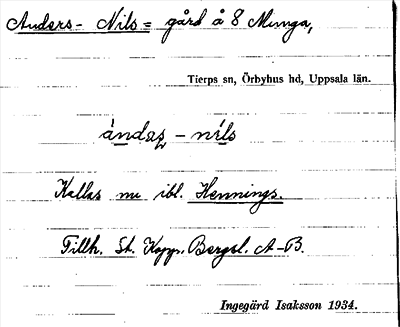 Anders- Nils= gård å 8 Munga,
Tierps sn, Örbyhus hd, Uppsala län.
ándaṣ - nìls
Kallas nu ibl. Hennings.
Tillh. St. Kopp. Bergsl. A-B.
Ingegärd Isaksson 1934.